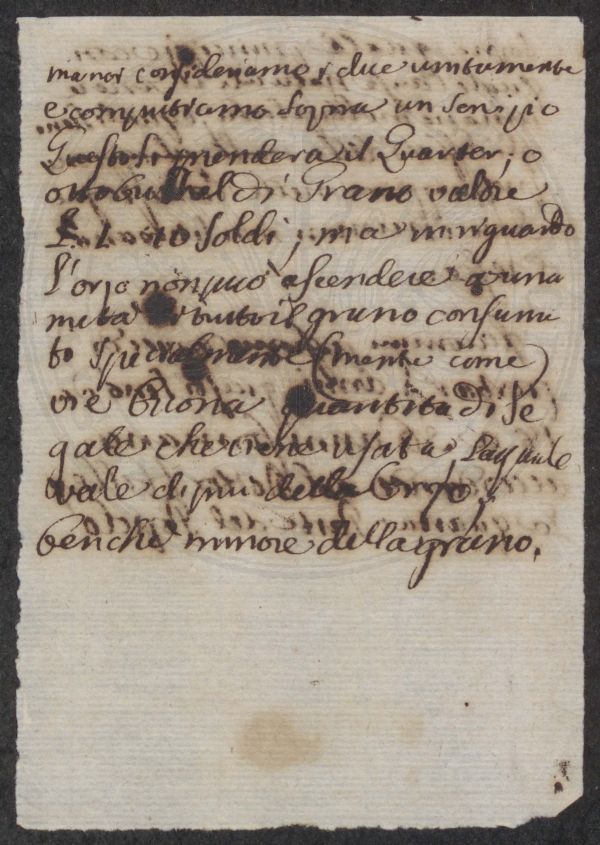 ma noi consideriamo i due unitamente
e computiamo sopra un sempio
Questo si prenderà il Quarter, o
otto bushel di Grano valore
£ 1 10 soldi, ma in riguardo
l'orzo non può ascendere a una
metà tutto il grano consuma
to specialmente (mente come)
vi è buona quantità di se
gale che viene usata, la quale
vale di più dell'orzo,
benche minore della grano.